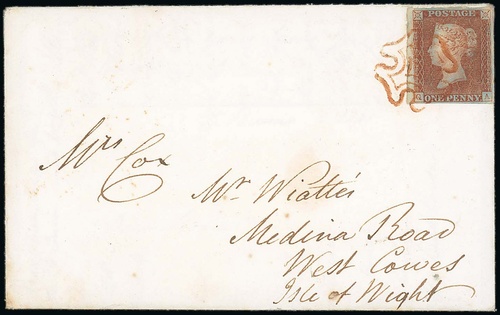 POSTAGE
ONE PENNY
Mrs Cox
Mr. Wiatt's
Medina Road
West Cowes
Isle of Wight